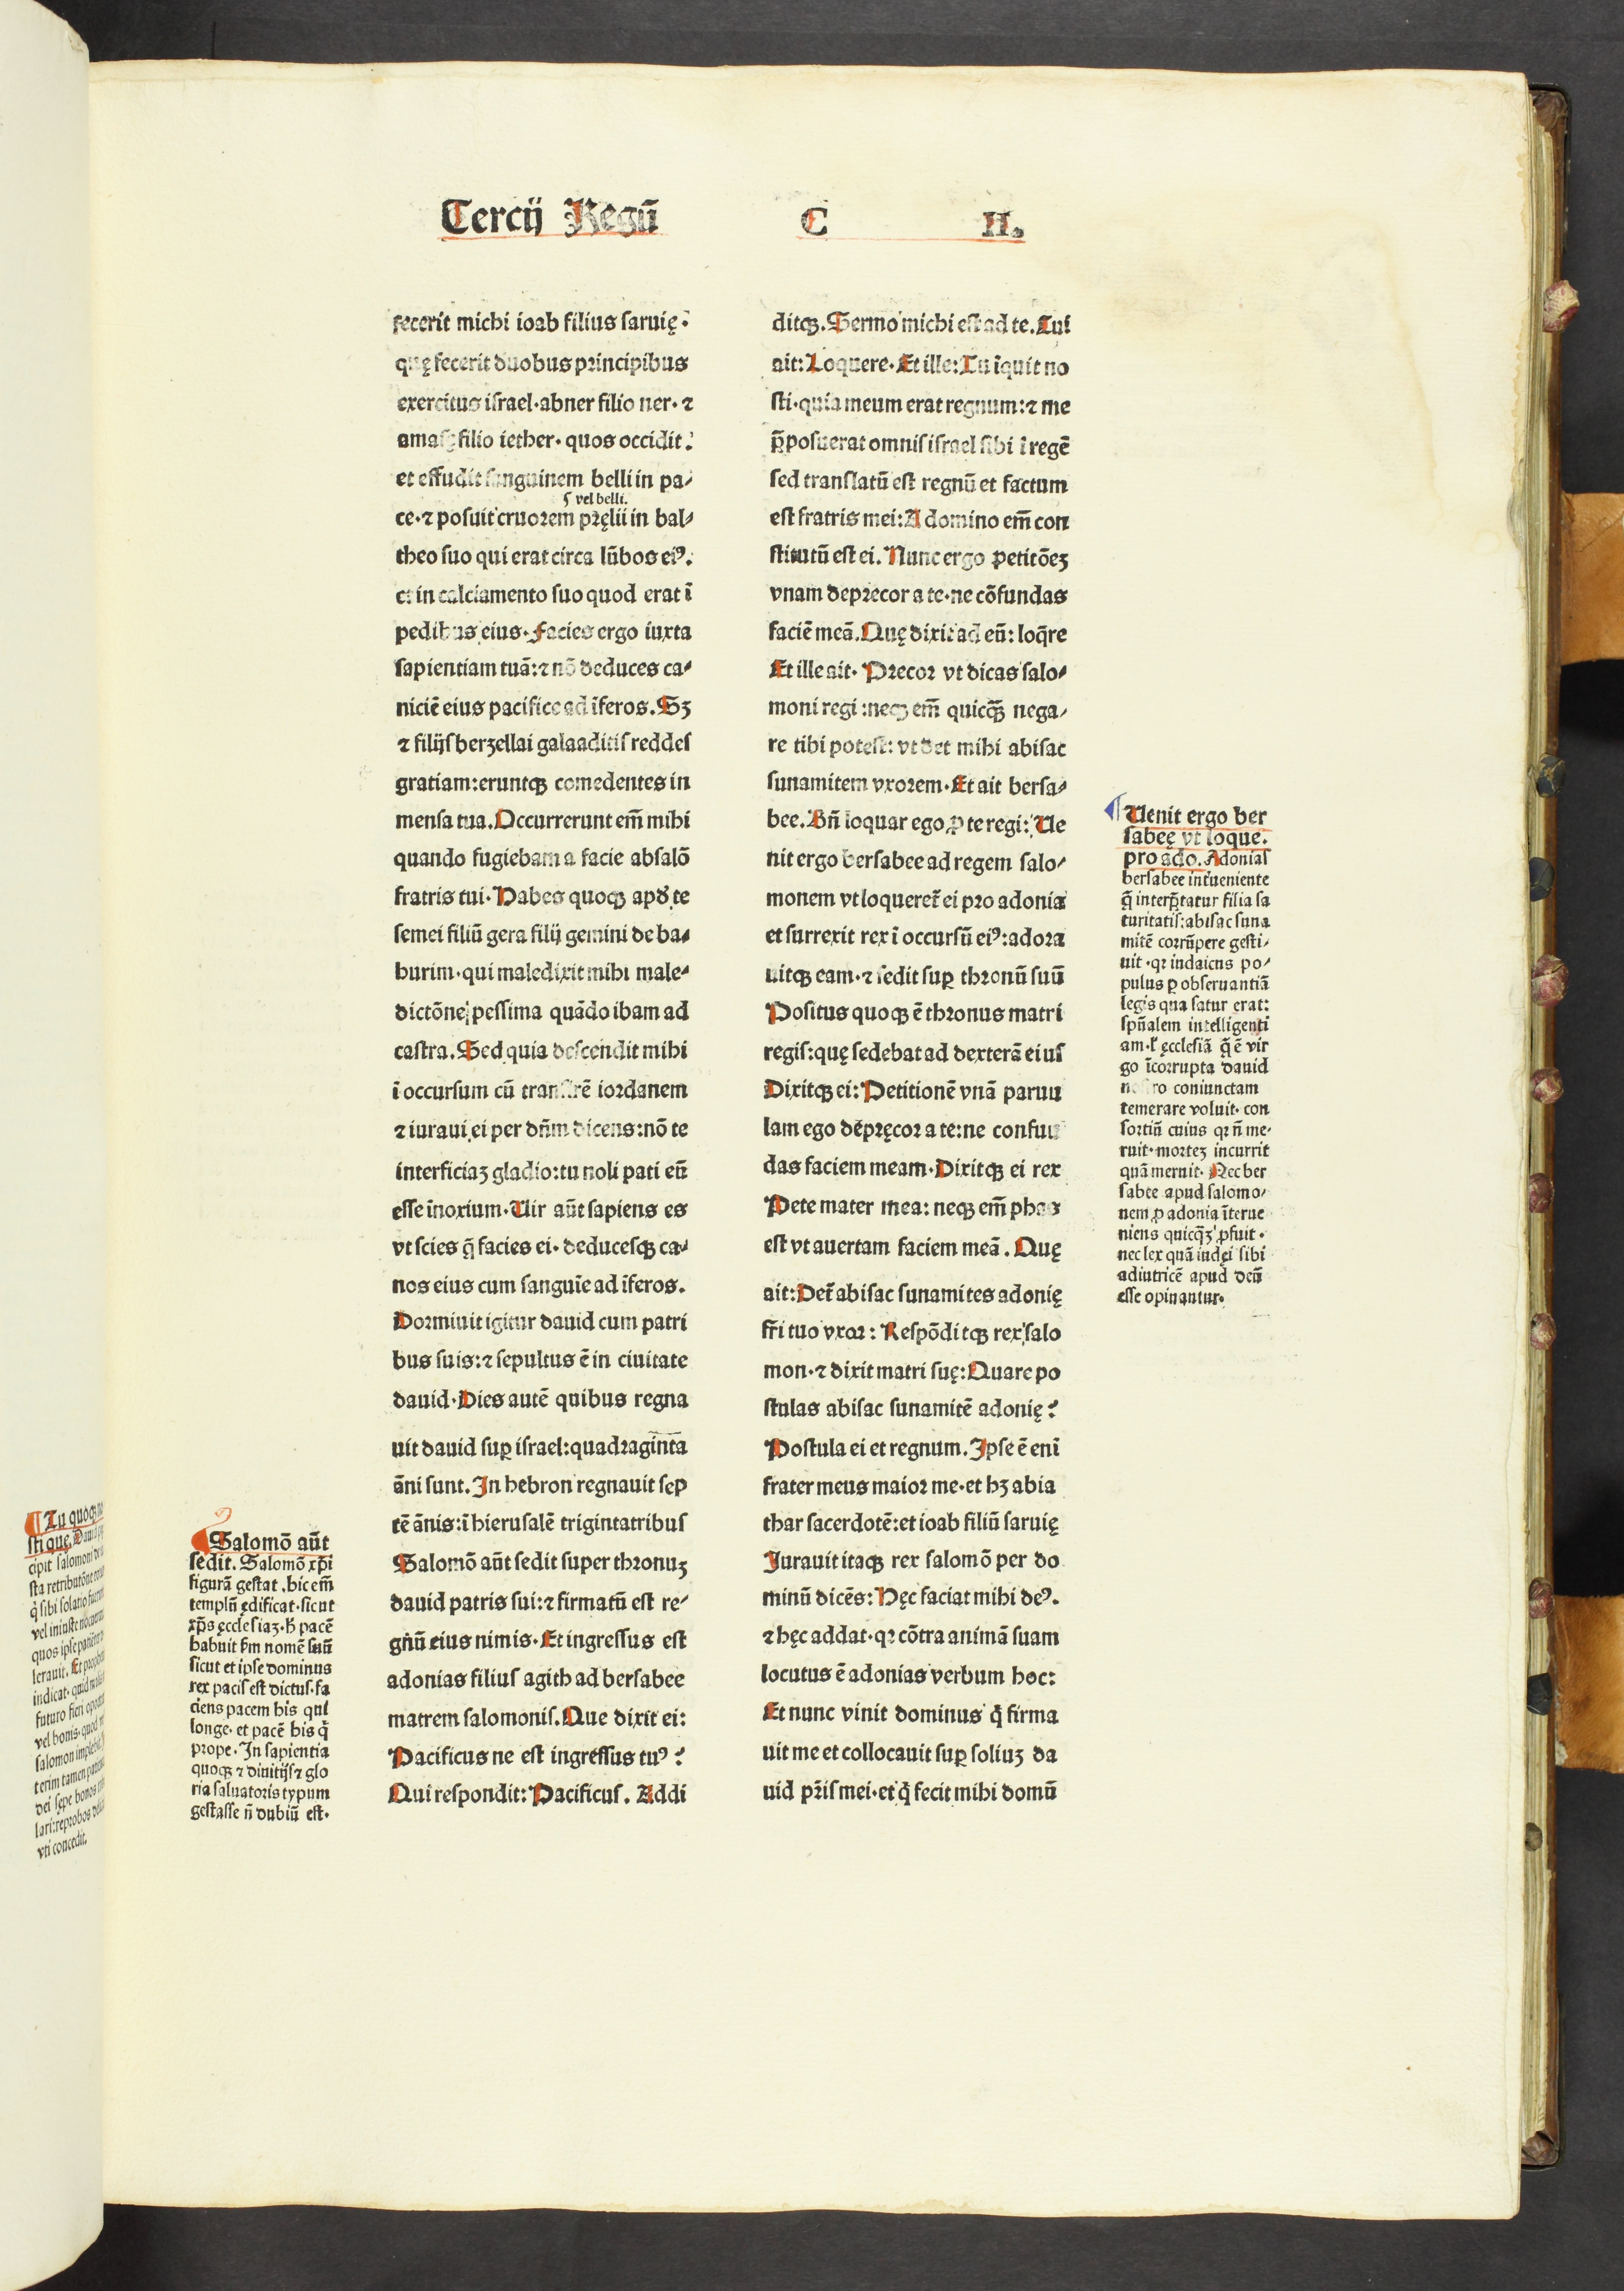 Tercij Regū C II.
fecerit michi ioab filius saruię:
quę fecerit duobus principibus
exercitus israel·abner filio ner·⁊
amasę filio iether·quos occidit:
et effudit sanguinem belli in pa⸗
ʕ vel belli.
ce·⁊ posuit cruorem pręlii in bal⸗
theo suo qui erat circa lūbos eiꝰ.
et in calciamento suo quod erat ī
pedibus eius·Facies ergo iuxta
sapientiam tuā:⁊ nō deduces ca⸗
niciē eius pacifice ad īferos.Sꝫ
⁊ filijs berzellai galaaditis reddes
gratiam:eruntqꝫ comedentes in
mensa tua.Occurrerunt em̄ mihi
quando fugiebam a facie absalō
fratris tui·Habes quoqꝫ apd̕ te
semei filiū gera filij gemini de ba⸗
burim·qui maledixit mihi male⸗
dictōne pessima quādo ibam ad
castra.Sed quia descendit mihi
ī occursum cū transirē iordanem
⁊ iuraui ei per dn̄m dicens:nō te
interficiaꝫ gladio:tu noli pati eū
esse īnoxium·Uir aūt sapiens es
vt scies q̄ facies ei·deducesqꝫ ca⸗
nos eius cum sanguīe ad īferos.
Dormiuit igitur dauid cum patri
bus suis:⁊ sepultus ē in ciuitate
dauid·Dies autē quibus regna
uit dauid suꝑ israel:quadraginta
āni sunt.In hebron regnauit sep
tē ānis:ī hierusalē trigintatribus
Salomō aūt sedit super thronuꝫ
dauid patris sui:⁊ firmatū est re⸗
gnū eius nimis·Et ingressus est
adonias filius agith ad bersabee
matrem salomonis.Que dixit ei:
Pacificus ne est ingressus tuꝰ?
Qui respondit:Pacificus.Addi
ditqꝫ.Sermo michi est ad te.Cui
ait:Loquere·Et ille:Tu īquit no
sti·quia meum erat regnum:⁊ me
p̄posuerat omnis israel sibi ī regē
sed translatū est regnū et factum
est fratris mei:A domino em̄ con
stitutū est ei.Nunc ergo petitōeꝫ
vnam deprecor a te·ne cōfundas
faciē meā.Quę dixit ad eū:loq̄re
Et ille ait·Precor vt dicas salo⸗
moni regi:neqꝫ em̄ quicq̄ꝫ nega⸗
re tibi potest:vt det mihi abisac
sunamitem vxorem·Et ait bersa⸗
bee.Bn̄ loquar ego ꝓ te regi:Ue
nit ergo bersabee ad regem salo⸗
monem vt loqueret̄ ei pro adonia
et surrexit rex ī occursū eiꝰ:adora
uitqꝫ eam·⁊ sedit suꝑ thronū suū
Positus quoqꝫ ē thronus matri
regis:quę sedebat ad dexterā eius
Dixitqꝫ ei:Petitionē vnā paruu
lam ego dēpręcor a te:ne confun
das faciem meam·Dixitqꝫ ei rex
Pete mater mea:neqꝫ em̄ phas
est vt auertam faciem meā.Quę
ait:Det̄ abisac sunamites adonię
fr̄i tuo vxor:Respōditqꝫ rex salo
mon·⁊ dixit matri suę:Quare po
stulas abisac sunamitē adonię?
Postula ei et regnum.Ipse ē enī
frater meus maior me·et hꝫ abia
thar sacerdotē:et ioab filiū saruię
Iurauit itaqꝫ rex salomō per do
minū dicēs:Hęc faciat mihi deꝰ.
⁊ hęc addat·qꝛ cōtra animā suam
locutus ē adonias verbum hoc:
Et nunc vinit dominus q̄ firma
uit me et collocauit suꝑ soliuꝫ da
uid pr̄is mei·et q̄ fecit mihi domū
Uenit ergo ber
sabeę vt loque.
pro ado.Adonias
bersabee int̄ueniente
q̄ interp̄tatur filia sa
turitatis:abisac suna
mitē corrūpere gesti⸗
uit·qꝛ iudaicus po⸗
pulus ꝑ obseruantiā
legis qua satur erat:
sp̄ualem intelligenti
am·ł ęcclesiā q̄ ē vir
go īcorrupta dauid
nostro coniunctam
temerare voluit·con
sortiū cuius qꝛ n̄ me⸗
ruit·morteꝫ incurrit
quā meruit·Nec ber
sabee apud salomo⸗
nem ꝓ adonia īterue
niens quicq̄ꝫ ꝓfuit·
nec lex quā iudęi sibi
adiutricē apud deū
esse opinantur.
Salomō aūt
sedit.Salomō xp̄i
figurā gestat,hic em̄
templū ędificat·sicut
xp̄s ęcclesiaꝫ·h̄ pacē
habuit ẜm nomē suū
sicut et ipse dominus
rex pacis est dictus·fa
ciens pacem his qui
longe·et pacē his q̄
prope·In sapientia
quoqꝫ ⁊ diuitijs ⁊ glo
ria saluatoris typum
gestasse n̄ dubiū est·
Tu quoqꝫ
sti que.
cipit salomoni
sta retributōne
q̄ sibi solatio
vel iniuste
quos ipse
lerauit.Et
indicat·quid
futuro fieri
vel bonis·quod
salomon
terim tamen
dei sępe bonos
lari:reprobos
vti concedit.